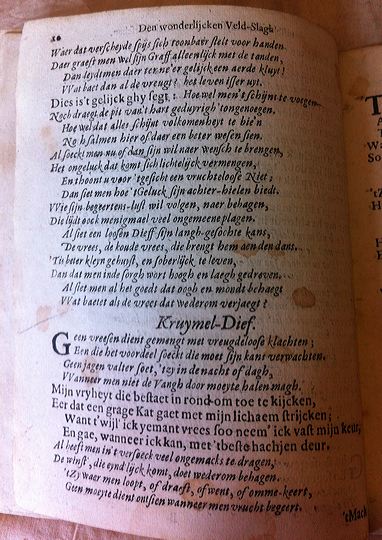 10 Den wonderlijcken Veld-Slagh
Waer dat verscheyde spijs sich toonbaer stelt voor handen.
Daer graeft men wel sijn Graff alleenlijck met de tanden,
Dan leydt men daer ter ne'er gelijck een aerde kluyt!
Wat baet dan al de vreugt? het leven isser uyt.
Dies is't gelijck ghy segt: Hoe wel men't schijnt te voegen
Noch draegt de pit van't hart geduyrigh 'tongenoegen.
Hoe wel dat alles schijnt volkomen heyt te bie'n
No h salmen hier of daer een beter wesen sien.
Al soeckt men nu of dan sijn wil naer wensch te brengen,
Het ongeluck dat komt sich lichtelijck vermengen,
En thoont u voor 'tgesicht een vruchteloose Niet;
Dan siet men hoe 'tGeluck sijn achter-hielen biedt.
Wie sijn begeertens-lust wil volgen, naer behagen,
Die lijdt oock menigmael veel ongemeene plagen.
Al siet een loosen Dieff sijn langh-gesochte kans,
De vrees, de koude vrees, die brengt hem aen den dans.
'Tis beter kleyn gehuyst, en soberlijck te leven,
Dan dat men inde sorgh wort hoogh en laegh gedreven.
Al siet men al het goedt dat oogh en mondt behaegt
Wat baetet als de vrees dat wederom verjaegt?
Kruymel-Dief.
Geen vreesen dient gemengt met vreugdeloose klachten;
Een die het voordeel soeckt die moet sijn kans verwachten.
Geen jagen valter soet, 'tzy in de nacht of dagh,
Wanneer men niet de Vangh door moeyte halen magh.
Mijn vryheyt die bestaet in rondom toe te kijcken,
Eer dat een grage Kat gaet met mijn lichaem strijcken;
Want t'wijl 'ick yemant vrees soo neem' ick vast mijn keur,
En gae, wanneer ick kan, met 'tbeste hachjen deur.
Al heeft men in 't versoeck veel ongemacks te dragen;
De winst, die eyndlijck komt, doet wederom behagen.
'tZy waer men loopt, of draeft, of went, of omme-keert,
Geen moeyte dient ontsien wanneer men vrucht begeert.
'tMack